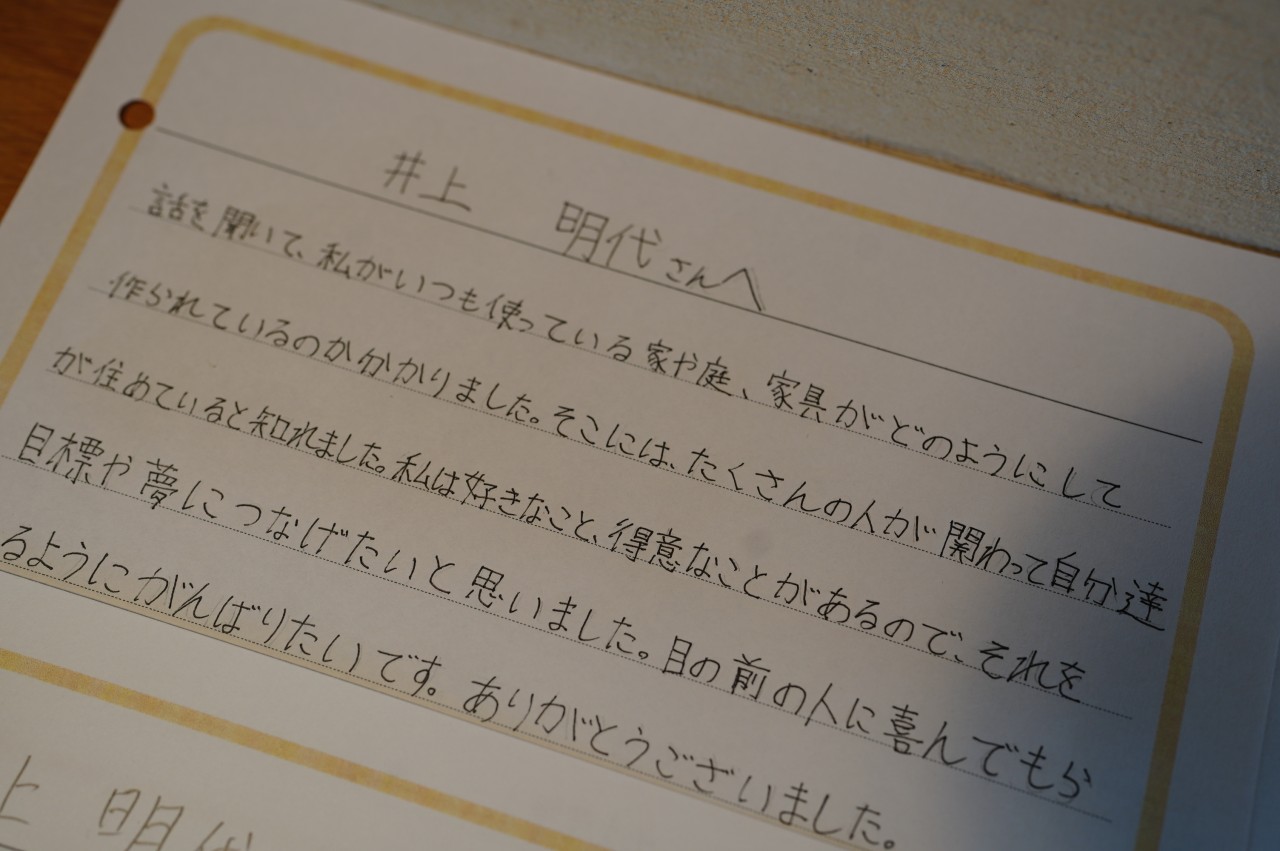 井上 明代さんへ
話を聞いて、私がいつも使っている家や庭、家具がどのようにして
作られているのか分かりました。そこには、たくさんの人が関わって自分達
が住めていると知れました。私は好きなこと、得意なことがあるので、それを
目標や夢につなげたいと思いました。目の前の人に喜んでもら
るようにがんばりたいです。ありがとうございました。
上 明代